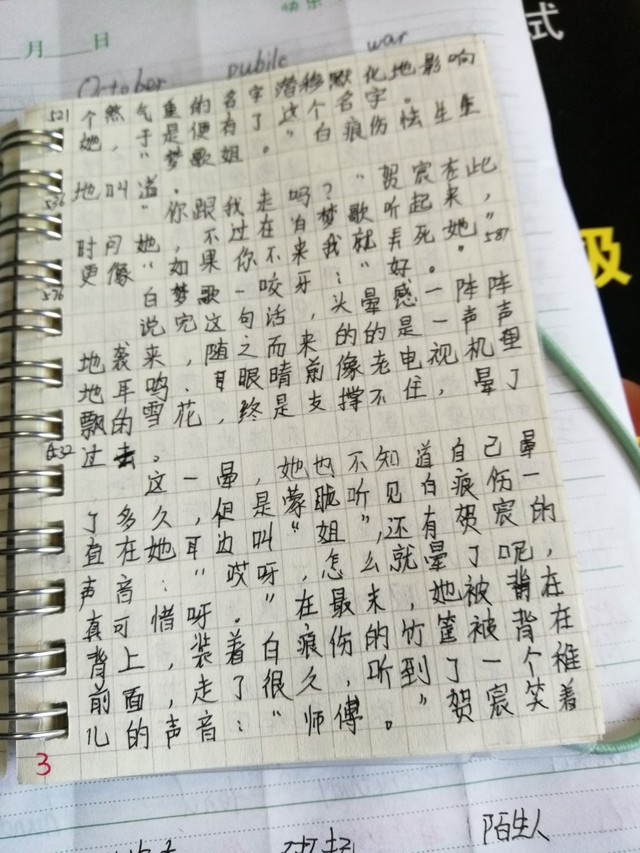 快乐
月 日
式
October pubile war
521 个煞气重的名字潜移默化地影响
她，于是便有了这个名字。
“梦歌姐。”白痕伤怯生生
地叫道。
556 “你跟我走吗？”贺宸在此
时问她，不过在白梦歌听起来，
更像“如果你不来我就弄死她”。587
576 白梦歌一咬牙：“好。”
说完这句话，头晕感一阵阵
地袭来，随之而来的的是一声声
地耳鸣.耳眼晴前像老电视机里
飘的雪花，终是支撑不住，晕了
632 过去。
这一晕，她也不知道自己晕
了多久，但是蒙眬听见白痕伤一
直在她耳边叫“姐”，还有贺宸的
声音：“哎呀，怎么就晕了呢，
真可惜呀。”在最末，她被背在
背上，装着白痕伤的竹筐被背在
前面，走了很久，听到了一个稚
儿的声音：“师傅。”贺宸笑着
3
级
陌生人